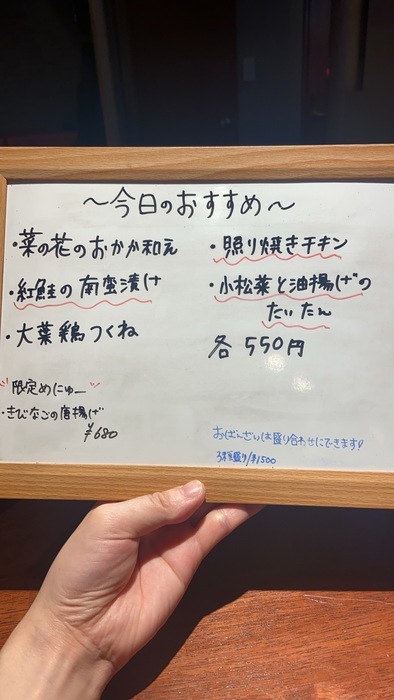 ～今日のおすすめ～
・菜の花のおかか和え
・紅鮭の南蛮漬け
・大葉鶏つくね
・照り焼きチキン
・小松菜と油揚げの
たいたん
各550円
限定めにゅー
・きびなごの唐揚げ
¥680
おばんざいは盛り合わせにできます!
3種盛り/¥1500